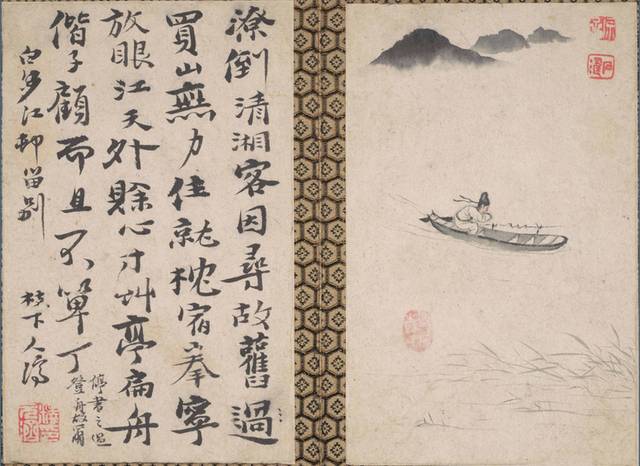 潦倒清湘客因尋故舊過
買山無力住就枕宿峯寧
放眼江天外賖心寸艸亭扁舟
偕子顧而且不單丁
白沙江邨留別
枝下人濟